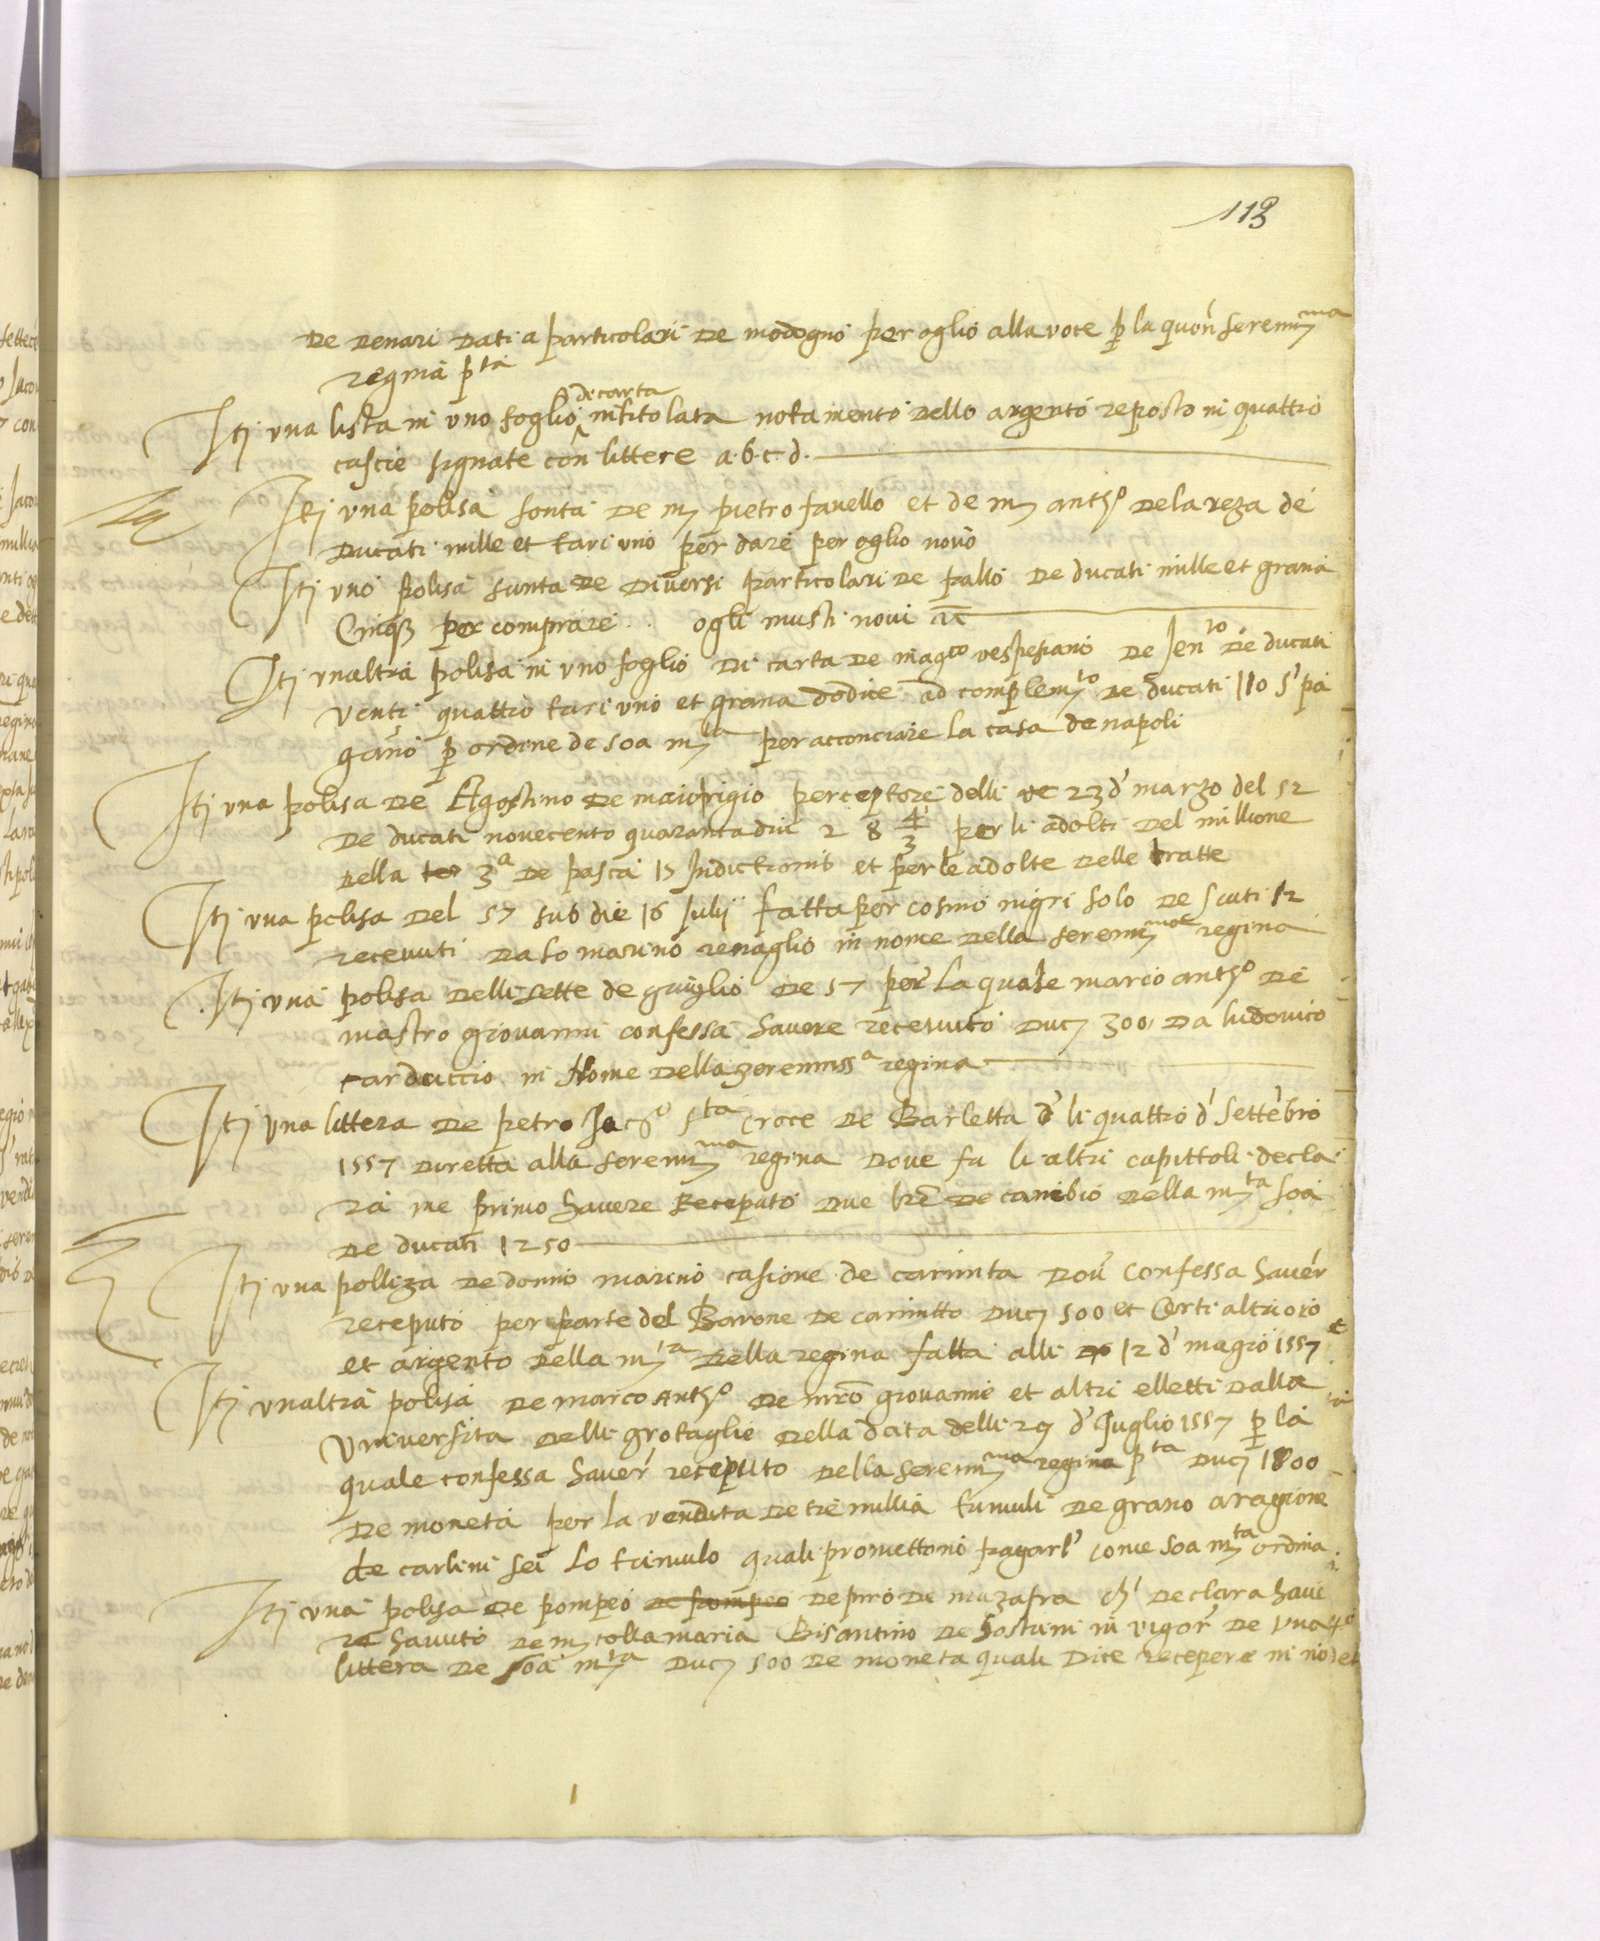 113
De denari dati a particolari de modogno per oglio alla voce p la quon serenma
regina pta
Itj una lista in uno foglio decarta intitolata notamento dello argento reposto in quattro
cascie signate con littere a.b.c.d.
Itj una polisa fonta de mj pietro favello et de mj antho dela reza de
ducati mille et tari uno per dare per oglio novo
Itj uno polisa sunta de diversi particolari de pallo de ducati mille et grana
Cinq per comprare ogli musti novi
Itj unaltra polisa in uno foglio di carta de magco vespesiano de Jento de ducati
venti quattro tari uno et grana dodice ad complemto de ducati 110 s' pa
gano p ordine de soa mta per acconciare la casa de napoli
Itj una polisa de Agostino de maiorigio perceptore delli 23 d' marzo del 52
De ducati novecento quaranta dui 2 8 4/3 per li adolti del millione
della 3a de pasca 15 Indictionis et per le adolte delle tratte
Itj una polisa del 57 sub die 16 Julij fatta per cosmo nigri solo de scuti 12
recevuti da so marino renaglio in nome della serenma regina
Itj una polisa delli sette de guiglio de 57 per la quale marco antho de
mastro giovanni confessa havere recevuto ducj 300 da ludovico
carduccio in Nome della serenissa regina
Itj Una littera de petro Jaco sta Croce de Barletta d' li quattro d' settebro
1557 diretta alla serenma regina dove fu li altri capittoli decla
ra me primo havere Receputo due lre de cambio della mta soa
de ducati 1250
Itj una polliza de donno marino casione de carinta dov confessa haver
receputo per parte del Barone de carintto ducj 500 et Certi altri oro
et argento della mta della regina fatta alli 12 d' magio 1557
Itj unaltra polisa de marco Antho de mro giovanne et altri elletti dalla
Universita delli grotaglie della data delli 29 d' Juglio 1557 p la
quale confessa haver receputo della serenma regina pta ducj 1800
De moneta per la vendita de tre millia tumuli de grano aragione
de carlini sei lo tumulo quali promettono pagarl' come soa mta ordina
Itj una polisa de pompeo de pompeo de piro de muzafra ch' declara have
re havuto de mj colla maria Bisantino de hostuni in vigor de una
littera de soa mta ducj 500 de moneta quali dice recepere in no